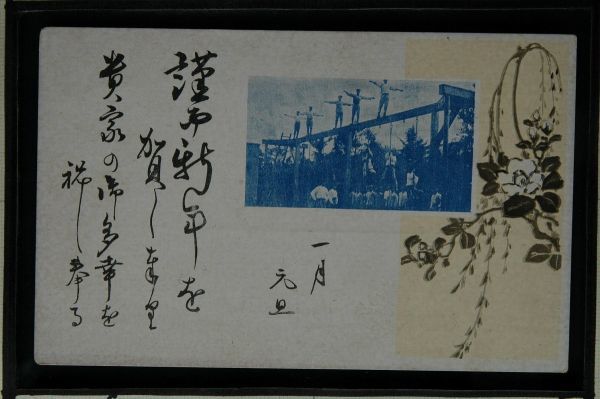 謹而新年を
賀し奉里
貴家の御多幸を
祝し奉る
一月
元旦